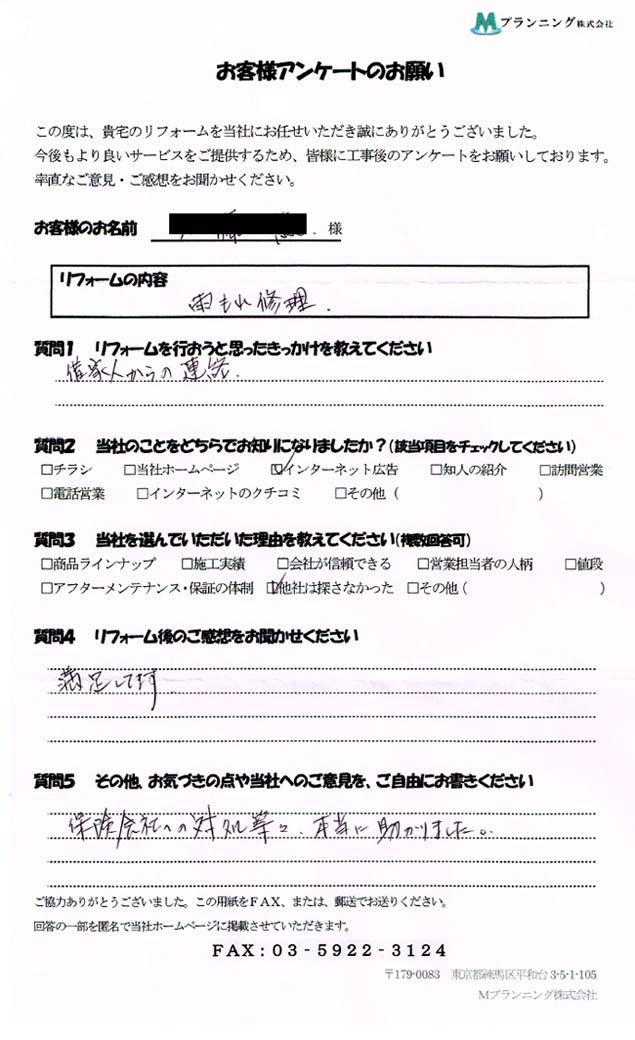 Mプランニング株式会社
お客様アンケートのお願い
この度は、貴宅のリフォームを当社にお任せいただき誠にありがとうございました。
今後もより良いサービスをご提供するため、皆様に工事後のアンケートをお願いしております。
率直なご意見・ご感想をお聞かせください。
お客様のお名前 様
リフォームの内容
雨もれ修理.
質問1 リフォームを行おうと思ったきっかけを教えてください
借家人からの連絡.
質問2 当社のことをどちらでお知りになりましたか?(該当項目をチェックしてください)
□チラシ □当社ホームページ ☑インターネット広告 □知人の紹介 □訪問営業
□電話営業 □インターネットのクチコミ □その他( )
質問3 当社を選んでいただいた理由を教えてください(複数回答可)
□商品ラインナップ □施工実績 □会社が信頼できる □営業担当者の人柄 □値段
□アフターメンテナンス・保証の体制 ☑他社は探さなかった □その他( )
質問4 リフォーム後のご感想をお聞かせください
満足してます
質問5 その他、お気づきの点や当社へのご意見を、ご自由にお書きください
保険会社への対処等で、本当に助かりました。
ご協力ありがとうございました。この用紙をFAX、または、郵送でお送りください。
回答の一部を匿名で当社ホームページに掲載させていただきます。
FAX:03-5922-3124
〒179-0083 東京都練馬区平和台3-5-1-105
Mプランニング株式会社